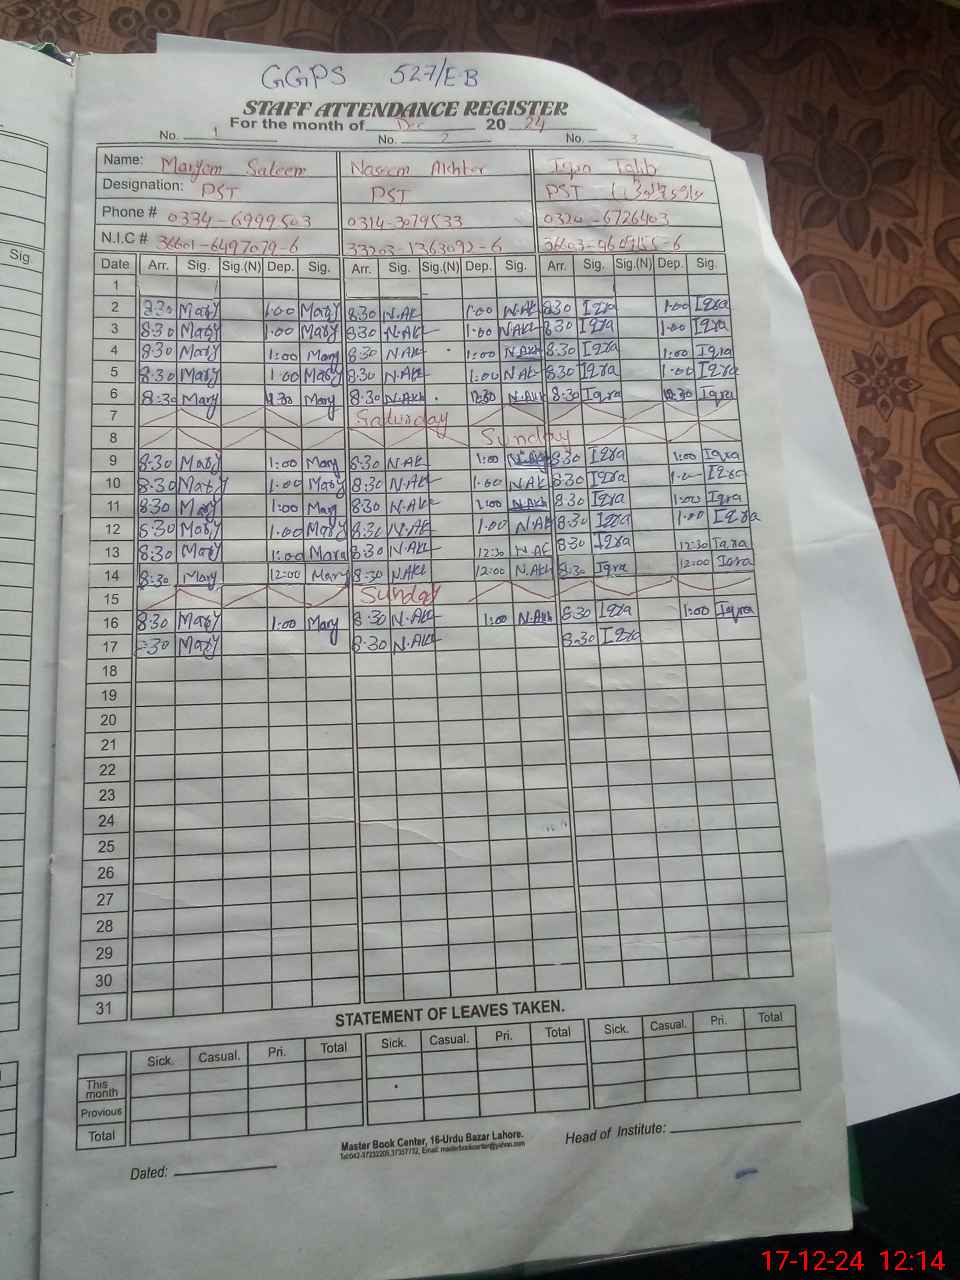 GGPS 527/E-B
STAFF ATTENDANCE REGISTER
For the month of Dec 20 24
No. 1 No. 2 No. 3
Name: Maryam Saleem Naseem Akhter Iqra Talib
Designation: PST PST PST
Phone # 0334-6999503 0314-3079533 0320-6726403
N.I.C # 36601-6497079-6 33203-1263092-6
Date Arr. Sig. Sig.(N) Dep. Sig. Arr. Sig. Sig.(N) Dep. Sig. Arr. Sig. Sig.(N) Dep. Sig.
1
2 8:30 Mary 1:00 Mary 8:30 N.Akh 1:00 N.Akh 8:30 Iqra 1:00 Iqra
3 8:30 Mary 1:00 Mary 8:30 N.Akh 1:00 N.Akh 8:30 Iqra 1:00 Iqra
4 8:30 Mary 1:00 Mary 8:30 N.Akh 1:00 N.Akh 8:30 Iqra 1:00 Iqra
5 8:30 Mary 1:00 Mary 8:30 N.Akh 1:00 N.Akh 8:30 Iqra 1:00 Iqra
6 8:30 Mary Mary 8:30 N.Akh N.Akh 8:30 Iqra Iqra
7 Saturday
8 Sunday
9 8:30 Mary 1:00 Mary 8:30 N.Akh 1:00 N.Akh 8:30 Iqra 1:00 Iqra
10 8:30 Mary 1:00 Mary 8:30 N.Akh 1:00 N.Akh 8:30 Iqra 1:00 Iqra
11 8:30 Mary 1:00 Mary 8:30 N.Akh 1:00 N.Akh 8:30 Iqra 1:00 Iqra
12 8:30 Mary 1:00 Mary 8:30 N.Akh 1:00 N.Akh 8:30 Iqra 1:00 Iqra
13 8:30 Mary Mary 8:30 N.Akh 12:30 N.Ak 8:30 Iqra 12:30 Iqra
14 8:30 Mary 12:00 Mary 8:30 N.Akh 12:00 N.Akh 8:30 Iqra 12:00 Iqra
15 Sunday
16 8:30 Mary 1:00 Mary 8:30 N.Akh 1:00 N.Akh 8:30 Iqra 1:00 Iqra
17 8:30 Mary 8:30 N.Akh 8:30 Iqra
18
19
20
21
22
23
24
25
26
27
28
29
30
31
STATEMENT OF LEAVES TAKEN.
Sick. Casual. Pri. Total Sick. Casual. Pri. Total Sick. Casual. Pri. Total
This month
Provious
Total
Master Book Center, 16-Urdu Bazar Lahore.
Dated: Head of Institute:
17-12-24 12:14
Sig.